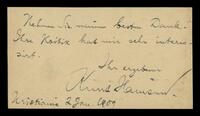 Nehmen Sie meinen besten Dank.
Ihre Kritik hat mir sehr interes-
sirt.
Ihr ergebener
Knut Hamsun.
Kristiania 2 Jan. 1909